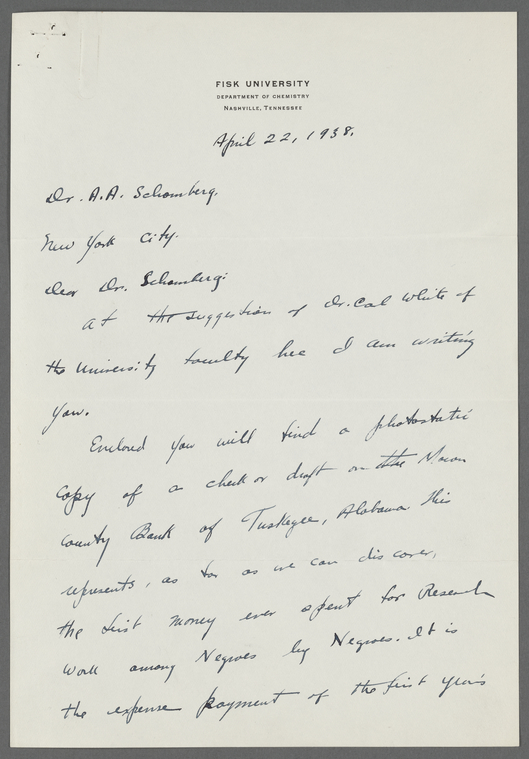 FISK UNIVERSITY
DEPARTMENT OF CHEMISTRY
NASHVILLE, TENNESSEE
April 22, 1938.
Dr. A.A. Schomberg.
New York City.
Dear Dr. Schomberg:
At the suggestion of Dr. Cal White of
the University faculty here I am writing
you.
Enclosed you will find a photostatic
copy of a check or draft on the Macon
County Bank of Tuskegee, Alabama this
represents, as far as we can discover,
the first money ever spent for Research
work among Negroes by Negroes. It is
the expense payment of the first year's